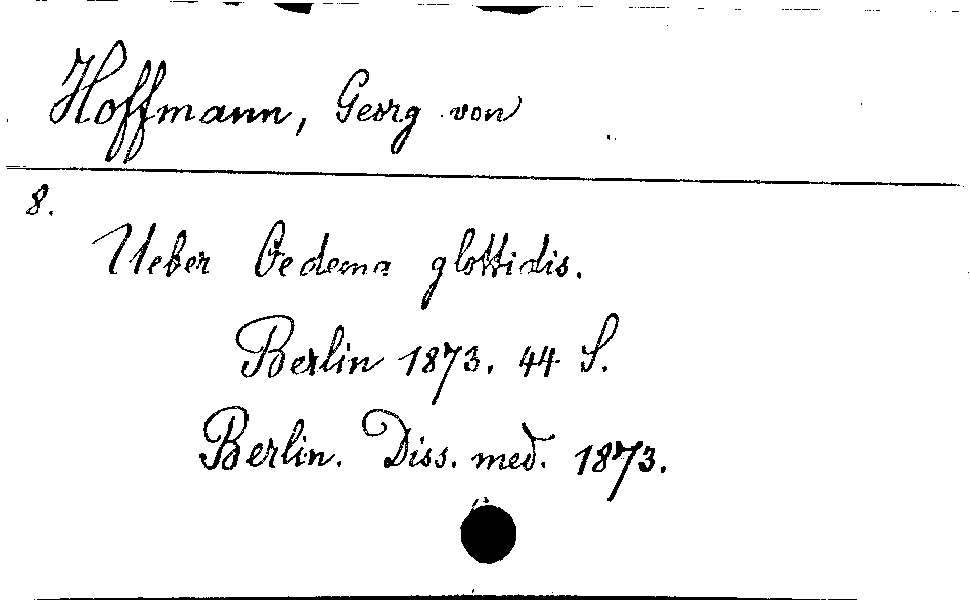 Hoffmann, Georg von
8.
Ueber Oedema glottidis.
Berlin 1873. 44 S.
Berlin. Diss. med. 1873.